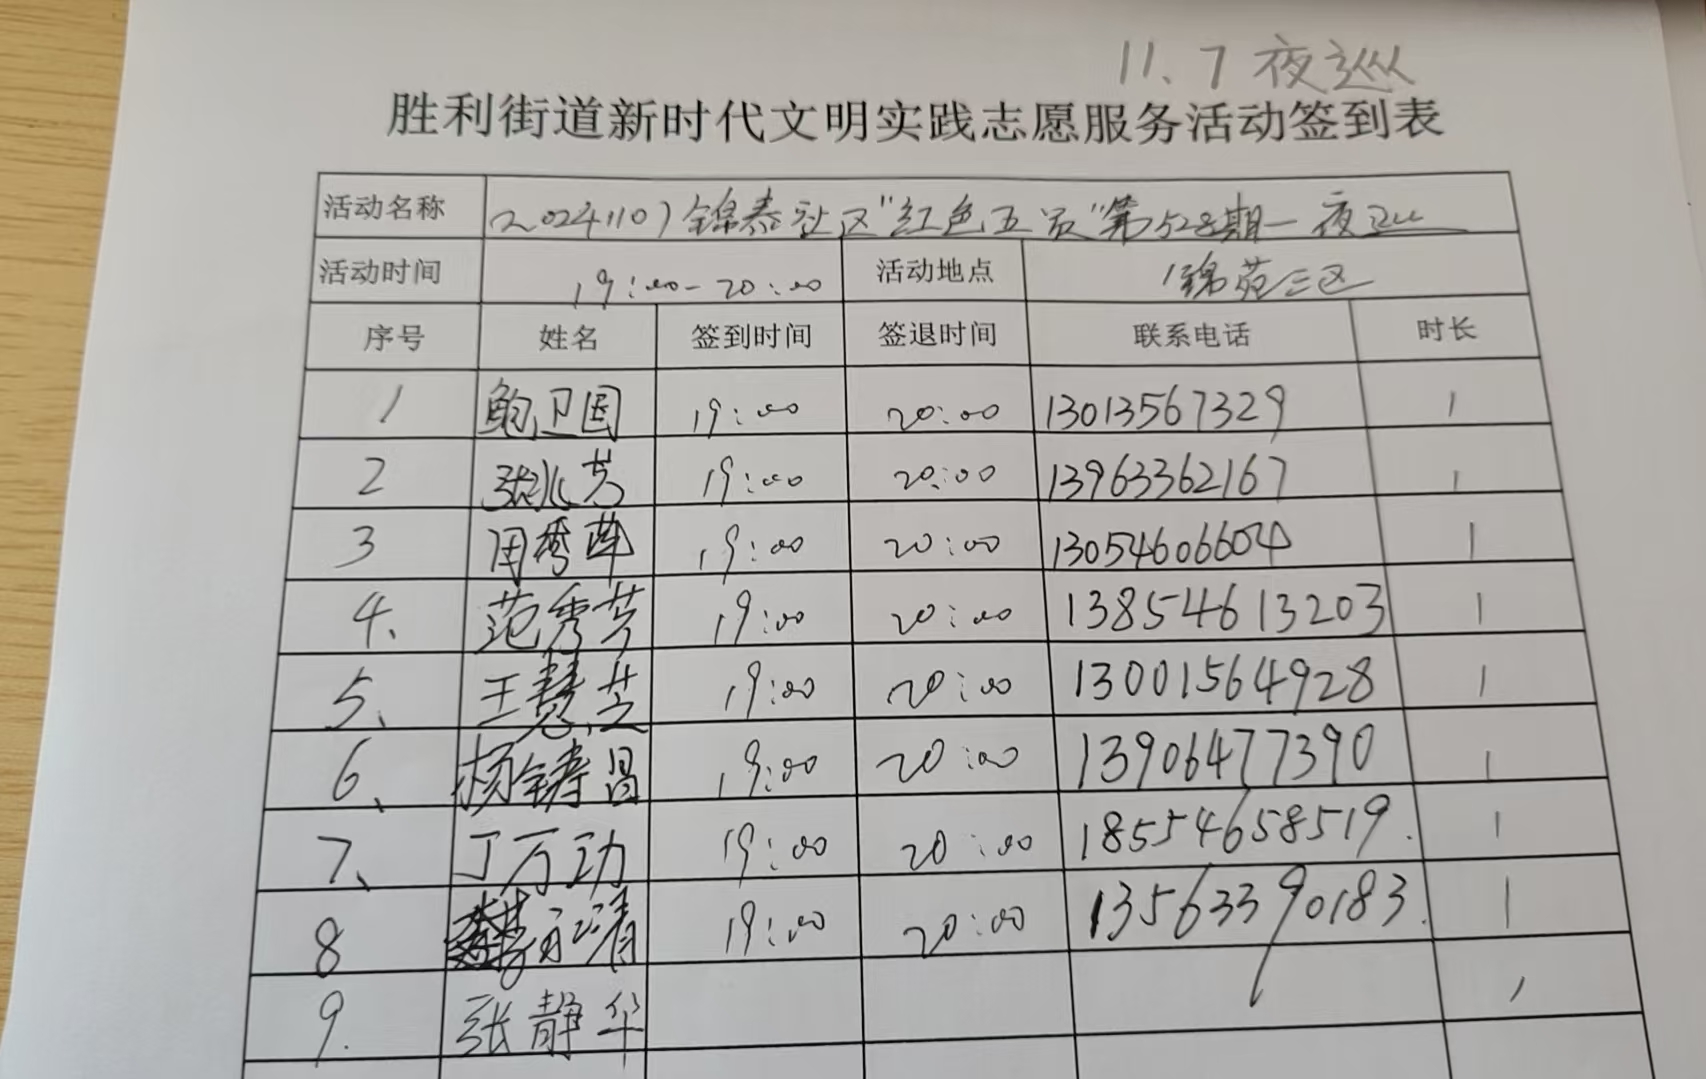 11.7夜巡
胜利街道新时代文明实践志愿服务活动签到表
活动名称 20241107锦泰社区"红色五员"第528期一夜巡
活动时间 19:00-20:00 活动地点 锦苑三区
序号 姓名 签到时间 签退时间 联系电话 时长
1 鲍卫国 19:00 20:00 13013567329 1
2 张兆芳 19:00 20:00 13963362167 1
3 周秀 19:00 20:00 13054606604 1
4、 范秀芳 19:00 20:00 13854613203 1
5、 王慧芝 19:00 20:00 13001564928 1
6、 杨铸昌 19:00 20:00 13906477390 1
7、 丁万功 19:00 20:00 18554658519. 1
8 永清 19:00 20:00 13563390183. 1
9. 张静华